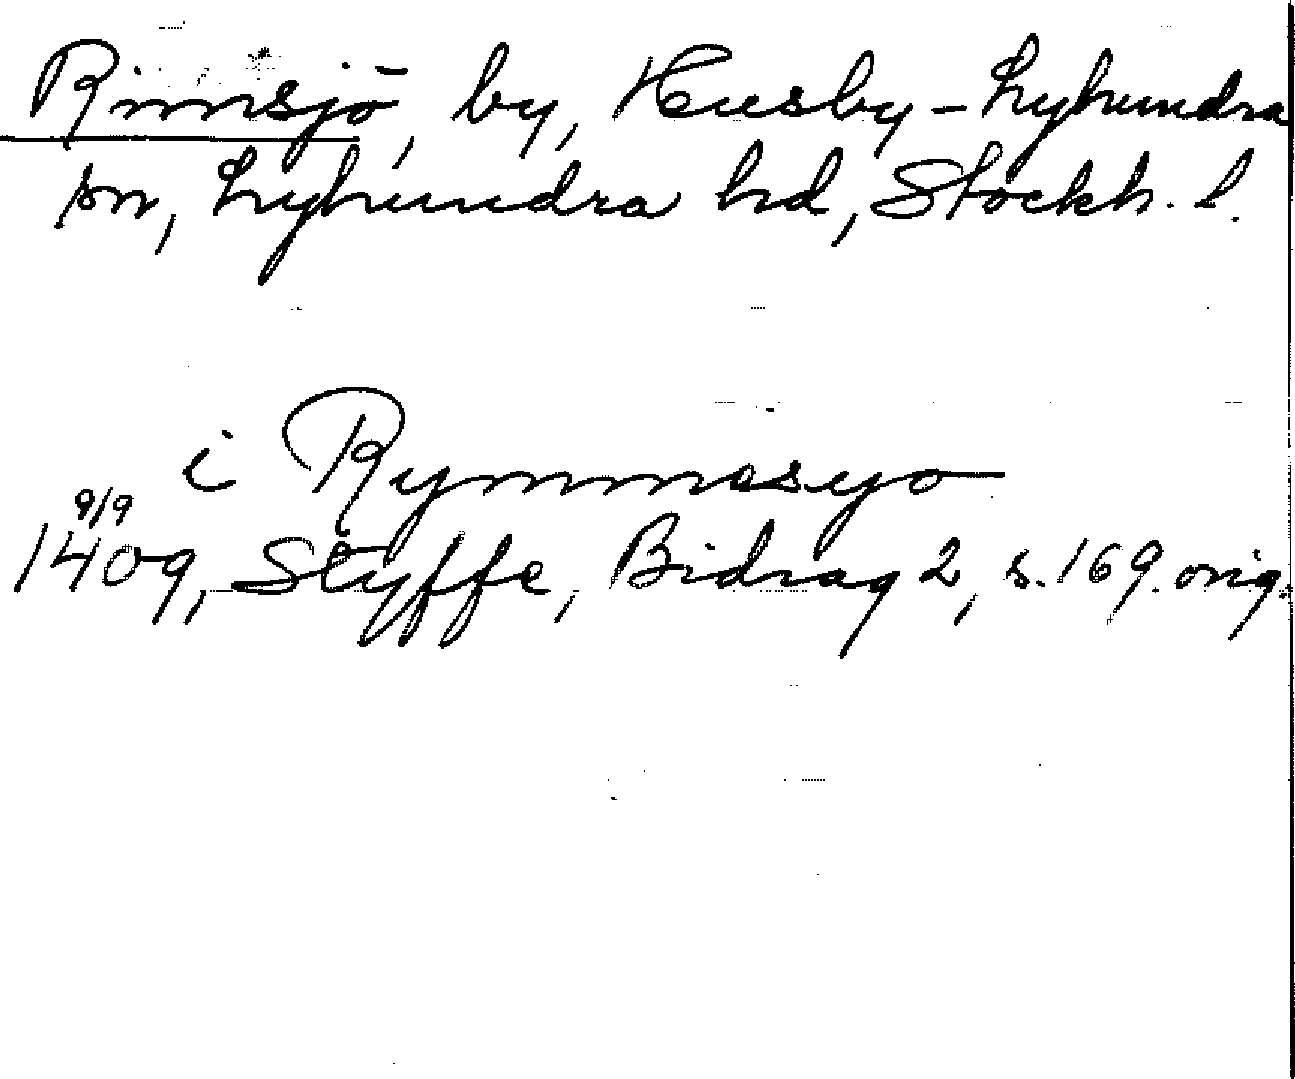 Rimsjö, by, Husby-Lyhundra
sn, Lyhundra hd, Stockh. l.
i Rymmosyo
9/9
1409, Styffe, Bidrag 2, s. 169. orig.